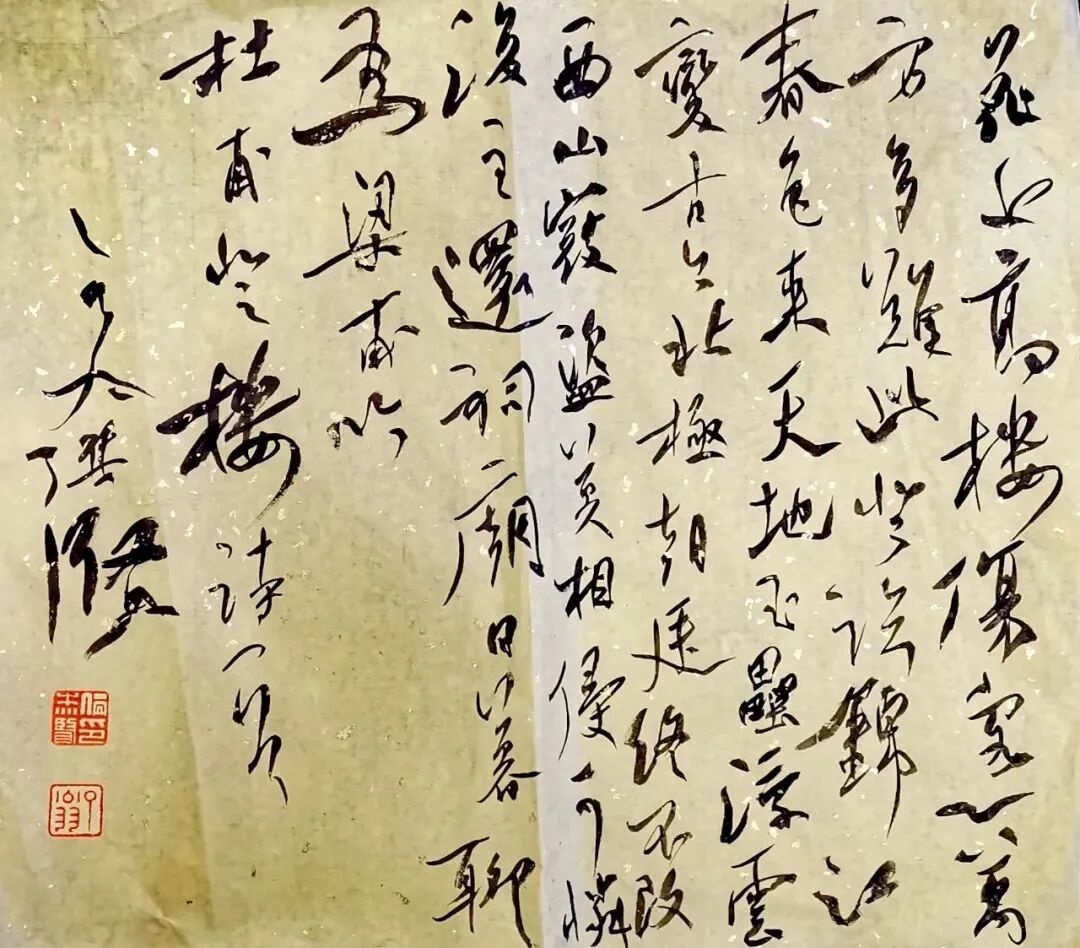 花近高樓傷客心萬
方多難此登臨錦江
春色來天地玉壘浮雲
變古今北極朝廷終不改
西山寇盜莫相侵可憐
後主還祠廟日暮聊
為梁甫吟
杜甫登樓詩一首